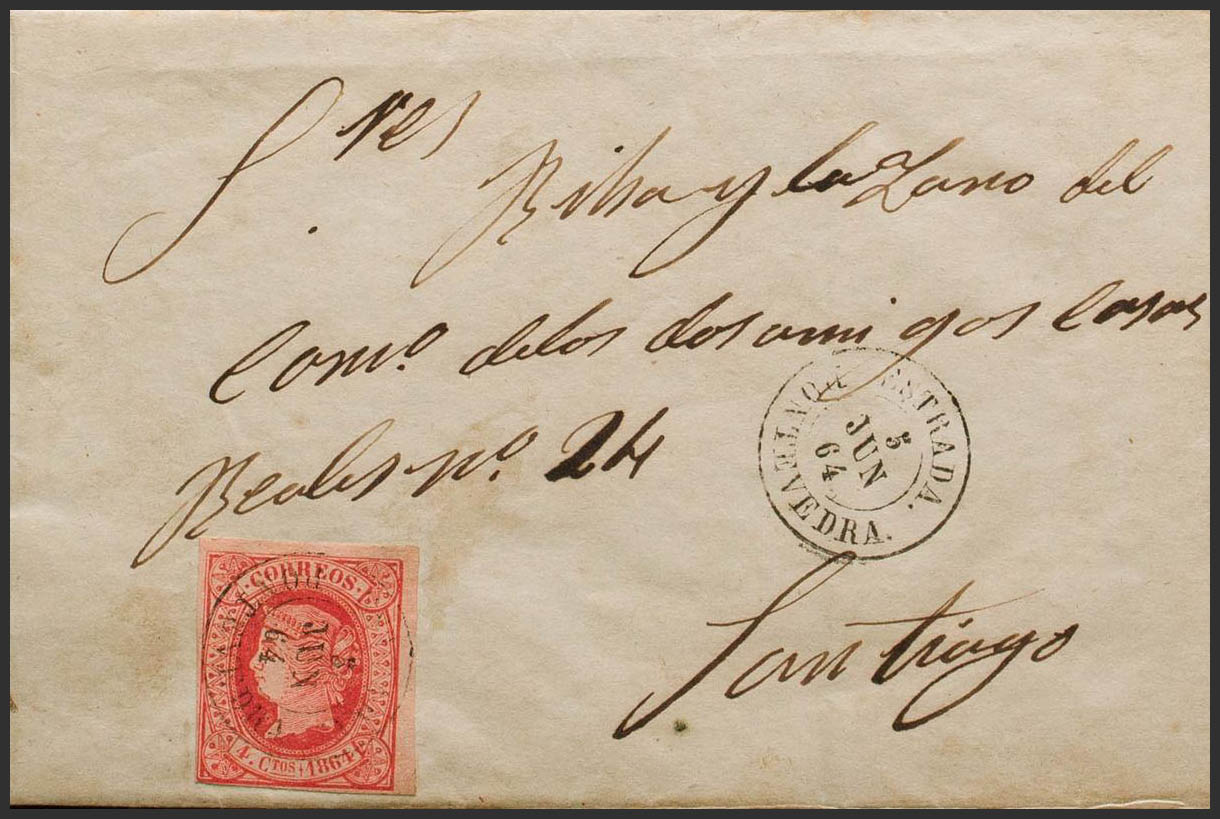 S.res Riba y la Zano del
Com.o delos dos amigos Casas
Reales n.o 24
ESTRADA.
5
JUN
64
PONTEVEDRA.
Santiago
CORREOS
5
JUN
64
4. CTOS 1864